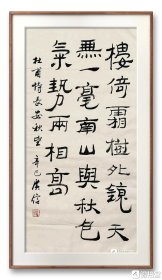 樓倚霜樹外鏡天
無一毫南山與秋色
氣勢兩相高
杜牧詩長安秋望 辛巳